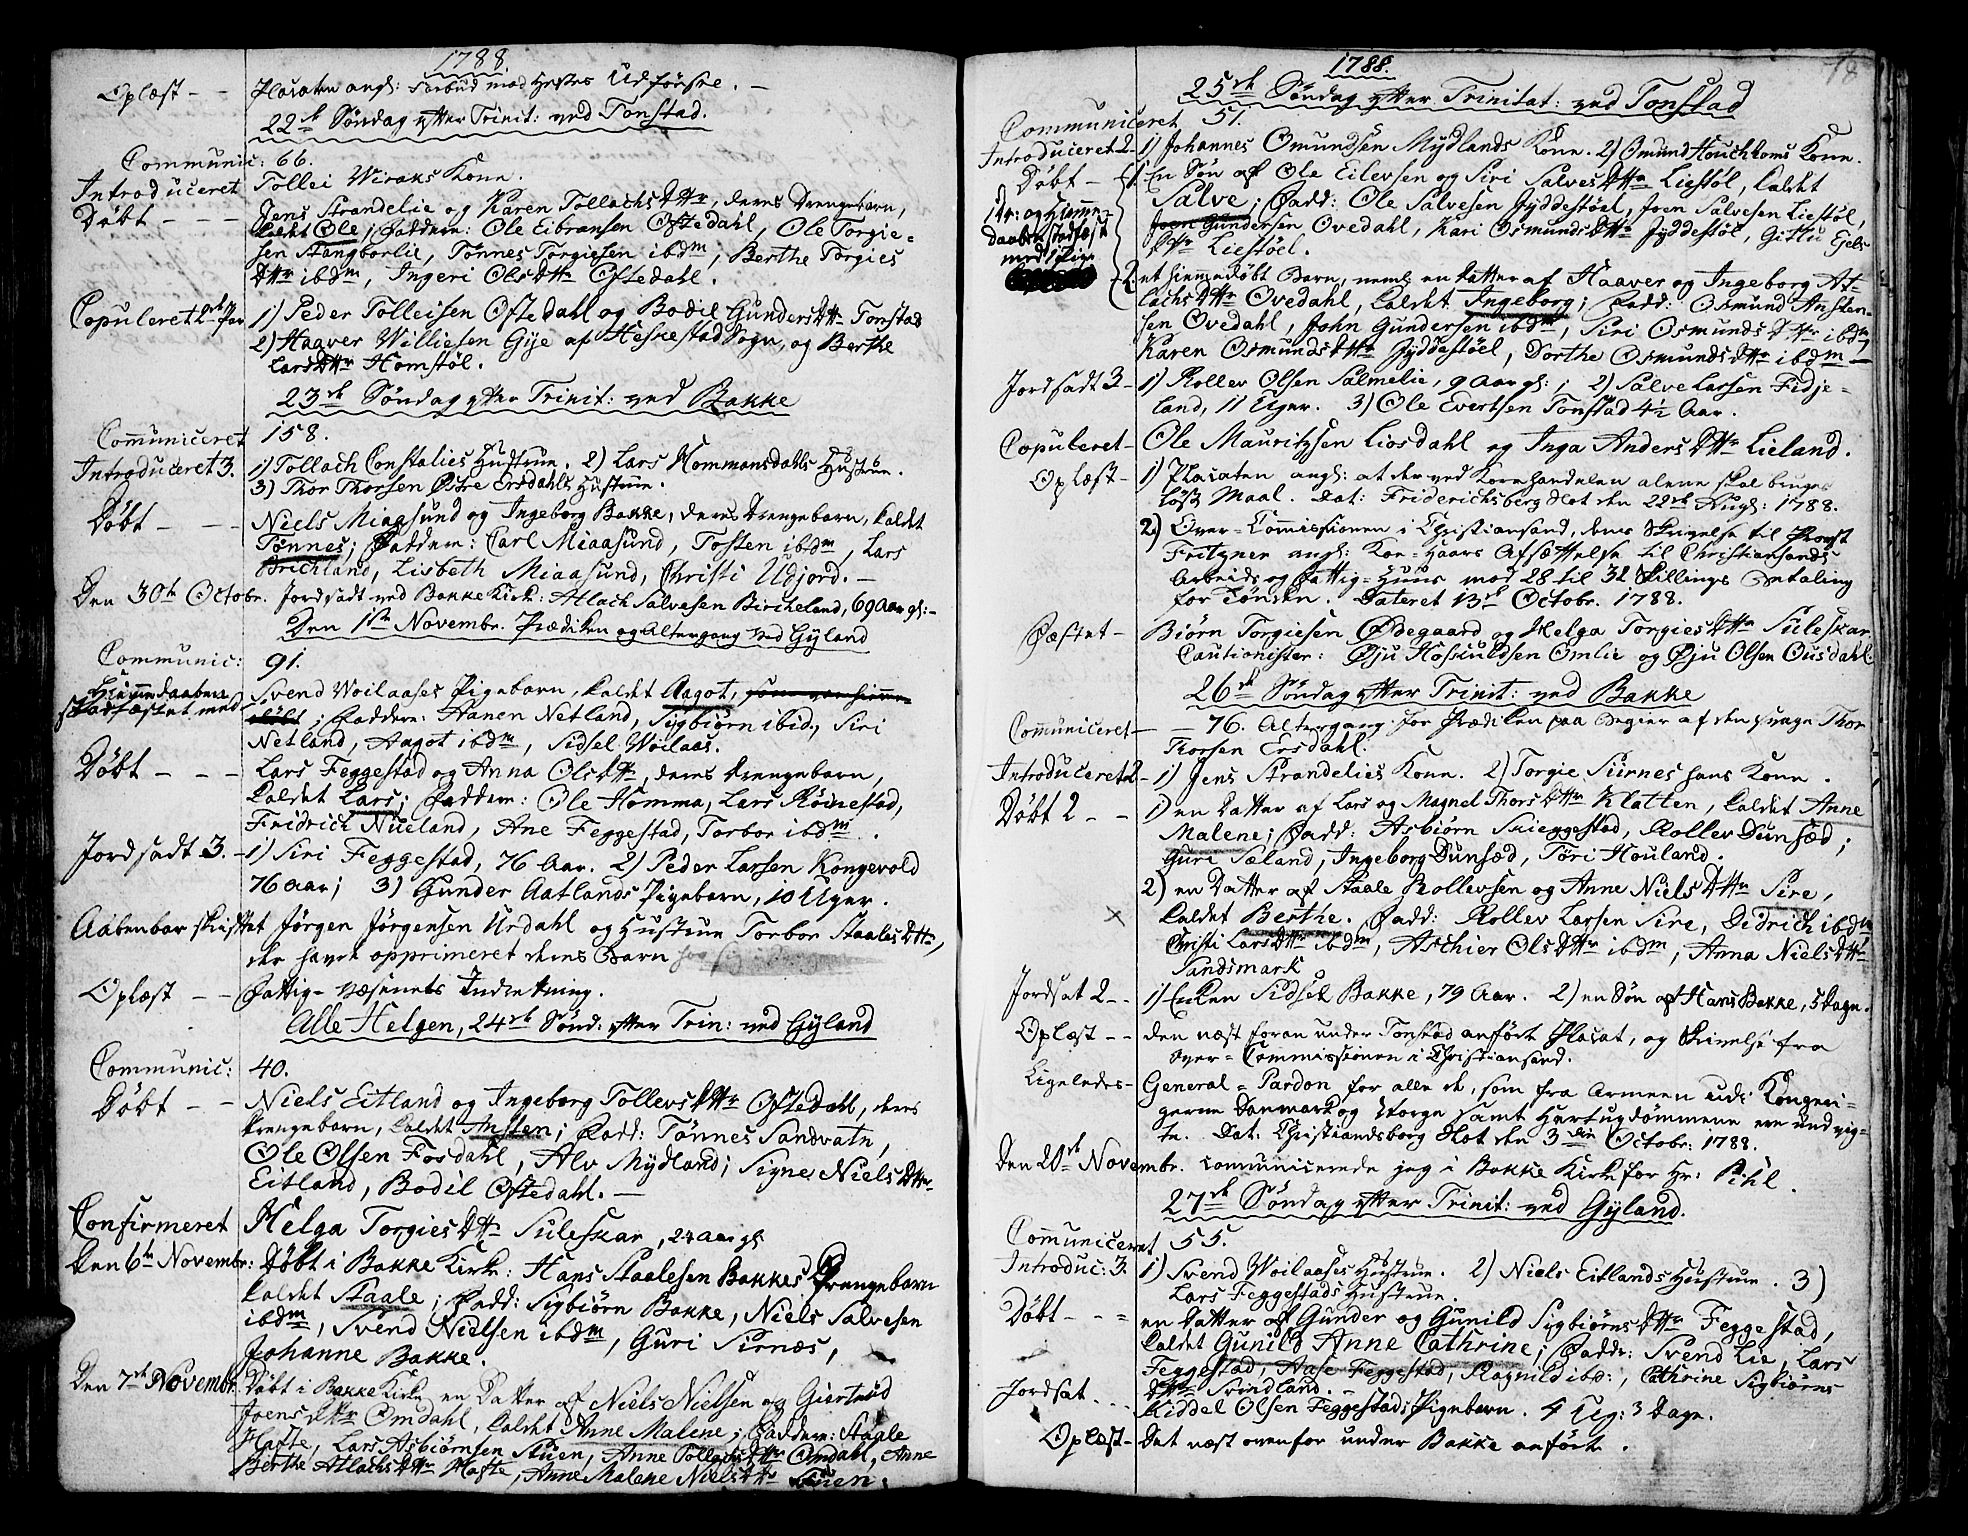 1788.
Oplæst - - Placaten ang: Forbud mod Hestes Udførsse. -
22de Søndag efter Trinit: ved Tonstad.
Communic: 66.
Introduceret Tollei Wiraks Kone.
Døbt - - - Jens Strandelie og Karen TollachsDttr, deres Drengebarn,
kaldt Ole; Faddere: Ole Eibransen Oftedahl, Ole Torgie-
sen Stangborlie, Tønnes Torgiesen ibdm, Berthe Torgies
Dttr ibdm, Ingeri OlsDttr Oftedahl.
Copuleret 2de Par 1) Peder Tolleisen Oftedahl og Bodil GundersDttr Tonstad
2) Haaver Williesen Gyie af Heskestad Sogn, og Berthe
LarsDttr Homstøl.
23de Søndag efter Trinit: ved Bakke
Communiceret 158.
Introduceret 3. 1) Tollach Constalies Hustrue. 2) Lars Hommansdahls Hustrue.
3) Thor Thorsen Østre Ersdahls Hustrue.
Døbt - - - Niels Miaasund og Ingeborg Bakke, deres Drengebarn, kaldet
Tønnes; Faddere: Carl Miaasund, Tosten ibdm, Lars
Birchland, Lisbeth Miaasund, Christi Udjord. -
Den 30te Octobr. Jordsadt ved Bakke Kirk: Atlach Salvesen Bircheland, 69 Aar gl: -
Den 1ste Novembr. Prædiken og Altergang ved Gyland
Communic: 91.
Hiemmedaaben
stadfæstet med Svend Woilaases Pigebarn, kaldet Aagot, som var hiemme
døbt; Faddere: Hanen Netland, Sigbiørn ibid, Siri
Netland, Aagot ibdm, Sidsel Woilaas.
Døbt - - - Lars Feggestad og Anna OlsDttr, deres Drengebarn,
kaldet Lars; Faddere: Ole Homma, Lars Røinestad,
Fridrich Nueland, Ane Feggestad, Torbor ibdm.
Jordsadt 3. - 1) Siri Feggestad, 76 Aar. 2) Peder Larsen Kongevold
76 Aar; 3) Gunder Aatlands Pigebarn, 10 Uger.
Aabenbar skriftet Jørgen Jørgensen Urdahl og Hustrue Torbor StaalesDttr,
der havde opprimeret deres Barn
Oplæst - - Fattig-Væsenets Indretning.
Alle Helgen, 24de Sønd: efter Trin: ved Gyland
Communic: 40.
Døbt - - Niels Eitland og Ingeborg TollevsDttr Oftedahl, deres
Drengebarn, kaldet Ansten; Fadd: Tønnes Sandvatn,
Ole Olsen Fosdahl, Alv Mydland; Signe NielsDttr
Eitland, Bodil Oftedahl. -
Confirmeret Helga TorgiesDttr Suleskar, 24 Aar gl
Den 6te Novembr: Døbt i Bakke Kirke: Hans Staalesen Bakkes Drengebarn
kaldet Staale; Fadd: Sigbiørn Bakke, Niels Salvesen
ibdm, Svend Nielsen ibdm, Guri Sirnæs,
Johanne Bakke.
Den 7de Novembr. Døbt i Bakke Kirke en Datter af Niels Nielsen og Giertrud
JoensDttr Omdahl, kaldet Anne Malene; Faddere: Staale
Hafte, Lars Asbiørnsen Stuen, Anne TollachsDttr Omdahl, Anne
Berthe AtlachsDttr Hafte, Anne Malene NielsDttr Stuen.
1788.
25de Søndag efter Trinitat: ved Tonstad
Communiceret 51.
Introduceret 2 - 1) Johannes Omundsen Mydlands Kone. 2) Omund Houchhoms Kone.
Døbt - 1. En Søn af Ole Eilevsen og Siri SalvesDttr Liestøl, kaldet
Salve; Fadd: Ole Salvesen Jyddestøel, Joen Salvesen Liestøl,
1 Dr: og Hiemme-
daaben stadfæst
med 1 Pige
Joen Gundersen, Ovedahl, Kari OsmundsDttr Jyddestøl, Gitlu Ejels
Dttr Liestøel.
2. et hiemmedøbt Barn, neml: en Datter af Haaver og Ingeborg At-
lachsDttr Ovedahl, kaldet Ingeborg; Fadd: Osmund Ansten-
sen Ovedahl, John Gundersen ibdm, Siri OsmundsDttr ibdm
Karen OsmundsDttr Jyddestøel, Dorthe OsmundsDttr ibdm -
Jordsadt 3 - 1) Rollev Olsen Salmelie, 9 Aar gl:; 2) Salve Larsen Fidje-
land, 11 Uger. 3) Ole Evertsen Tonstad 4½ Aar.
Copuleret - Ole Mauritzsen Liosdahl og Inga AndersDttr Lieland.
Oplæst - 1) Placaten angl: at der ved Kornhandelen alene skal bruges
løst Maal. Dat: Friderichsberg Slot den 22de Augl: 1788.
2) Over-Commissionen i Christiansand, dens Skrivelse til Provst
Fritzner angl: Koe-Haars Afsættelse til Christiansands
Arbeids og Fattig-Huus mod 28 til 32 Skillings Betaling
for Tønden. Dateret 13de Octobr. 1788.
Fæstet - Biørn Torgiesen Ødegaard og Helga TorgiesDttr Suleskar
Cautionister: Øju Hosculdsen Omlie og Øju Olsen Ousdahl.
26de Søndag efter Trinit: ved Bakke
Communiceret - - 76. Altergang for Prædiken paa Begier af den syuge Thor
Thorsen Ersdahl.
Introduceret 2 - 1) Jens Strandelies Kone. 2) Torgie Sirnes hans Kone.
Døbt 2 - - 1) en Datter af Lars og Magnel ThorsDttr Klatten, kaldet Anne
Malene; Fadd: Asbiørn Skieggestad, Rollev Dunsæd;
Guri Sæland, Ingeborg Dunsæd, Tøri Houland.
2) en Datter af Staale Rollevsen og Anne NielsDttr Sire,
× kaldet Berthe. Fadd: Rollev Larsen Sire, Didrich ibdm
Christi LarsDttr ibdm, Aschier OlsDttr ibdm, Anna NielsDttr
Sandsmark
Jordsat 2 - - 1) Enken Sidsel Bakke, 79 Aar. 2) en Søn af Hans Bakke, 5 Dage.
Oplæst - - Den næst foran under Tonstad anførte Placat, og Skrivelse fra
Over-Commissionen i Christiansand.
Ligeledes - General-Pardon for alle de, som fra Armeen udi Kongeri-
gerne Danmark og Norge samt Hertugdømmene ere undvig-
te. Dat: Christiansborg Slot den 3die Octobr: 1788.
Den 20de Novembr. communicerede jeg i Bakke Kirke for Hr: Pihl.
27de Søndag efter Trinit: ved Gyland.
Communiceret 55.
Introduc: 3. 1) Svend Woilaases Hustrue. 2) Niels Eitlands Hustrue. 3)
Lars Feggestads Hustrue.
Døbt - - - en Datter af Gunder og Gunild SigbiørnsDttr Feggestad,
kaldet Gunild Anne Cathrine; Fadd: Svend Lie, Lars
Feggestad, Aase Feggestad, Ragnild ibd:, Cathrine Sigbiørns
Dttr Svindland. -
Jordsat - - - Kiddel Olsen Feggestads Pigebarn. 4 Ug: 3 Dage.
Oplæst - Det næst ovenfor under Bakke anførte.